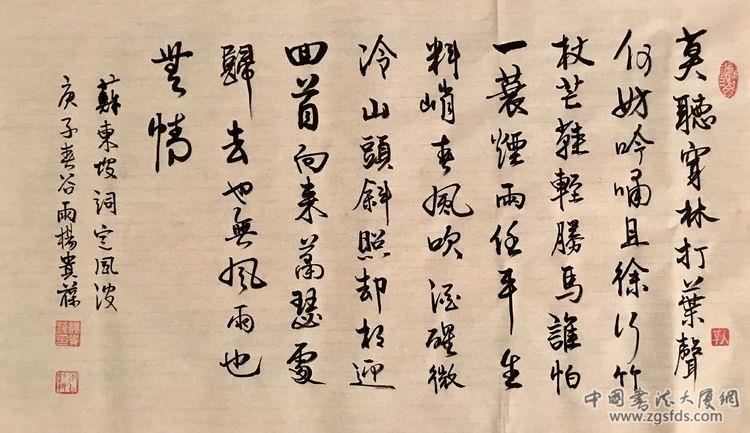 莫聽穿林打葉聲
何妨吟嘯且徐行竹
杖芒鞋輕勝馬誰怕
一蓑煙雨任平生
料峭春風吹酒醒微
冷山頭斜照却相迎
回首向来蕭瑟處
歸去也無風雨也
無情
蘇東坡詞定風波
庚子春谷雨楊貴葆
中国書法大厦網
www.zgsfds.com